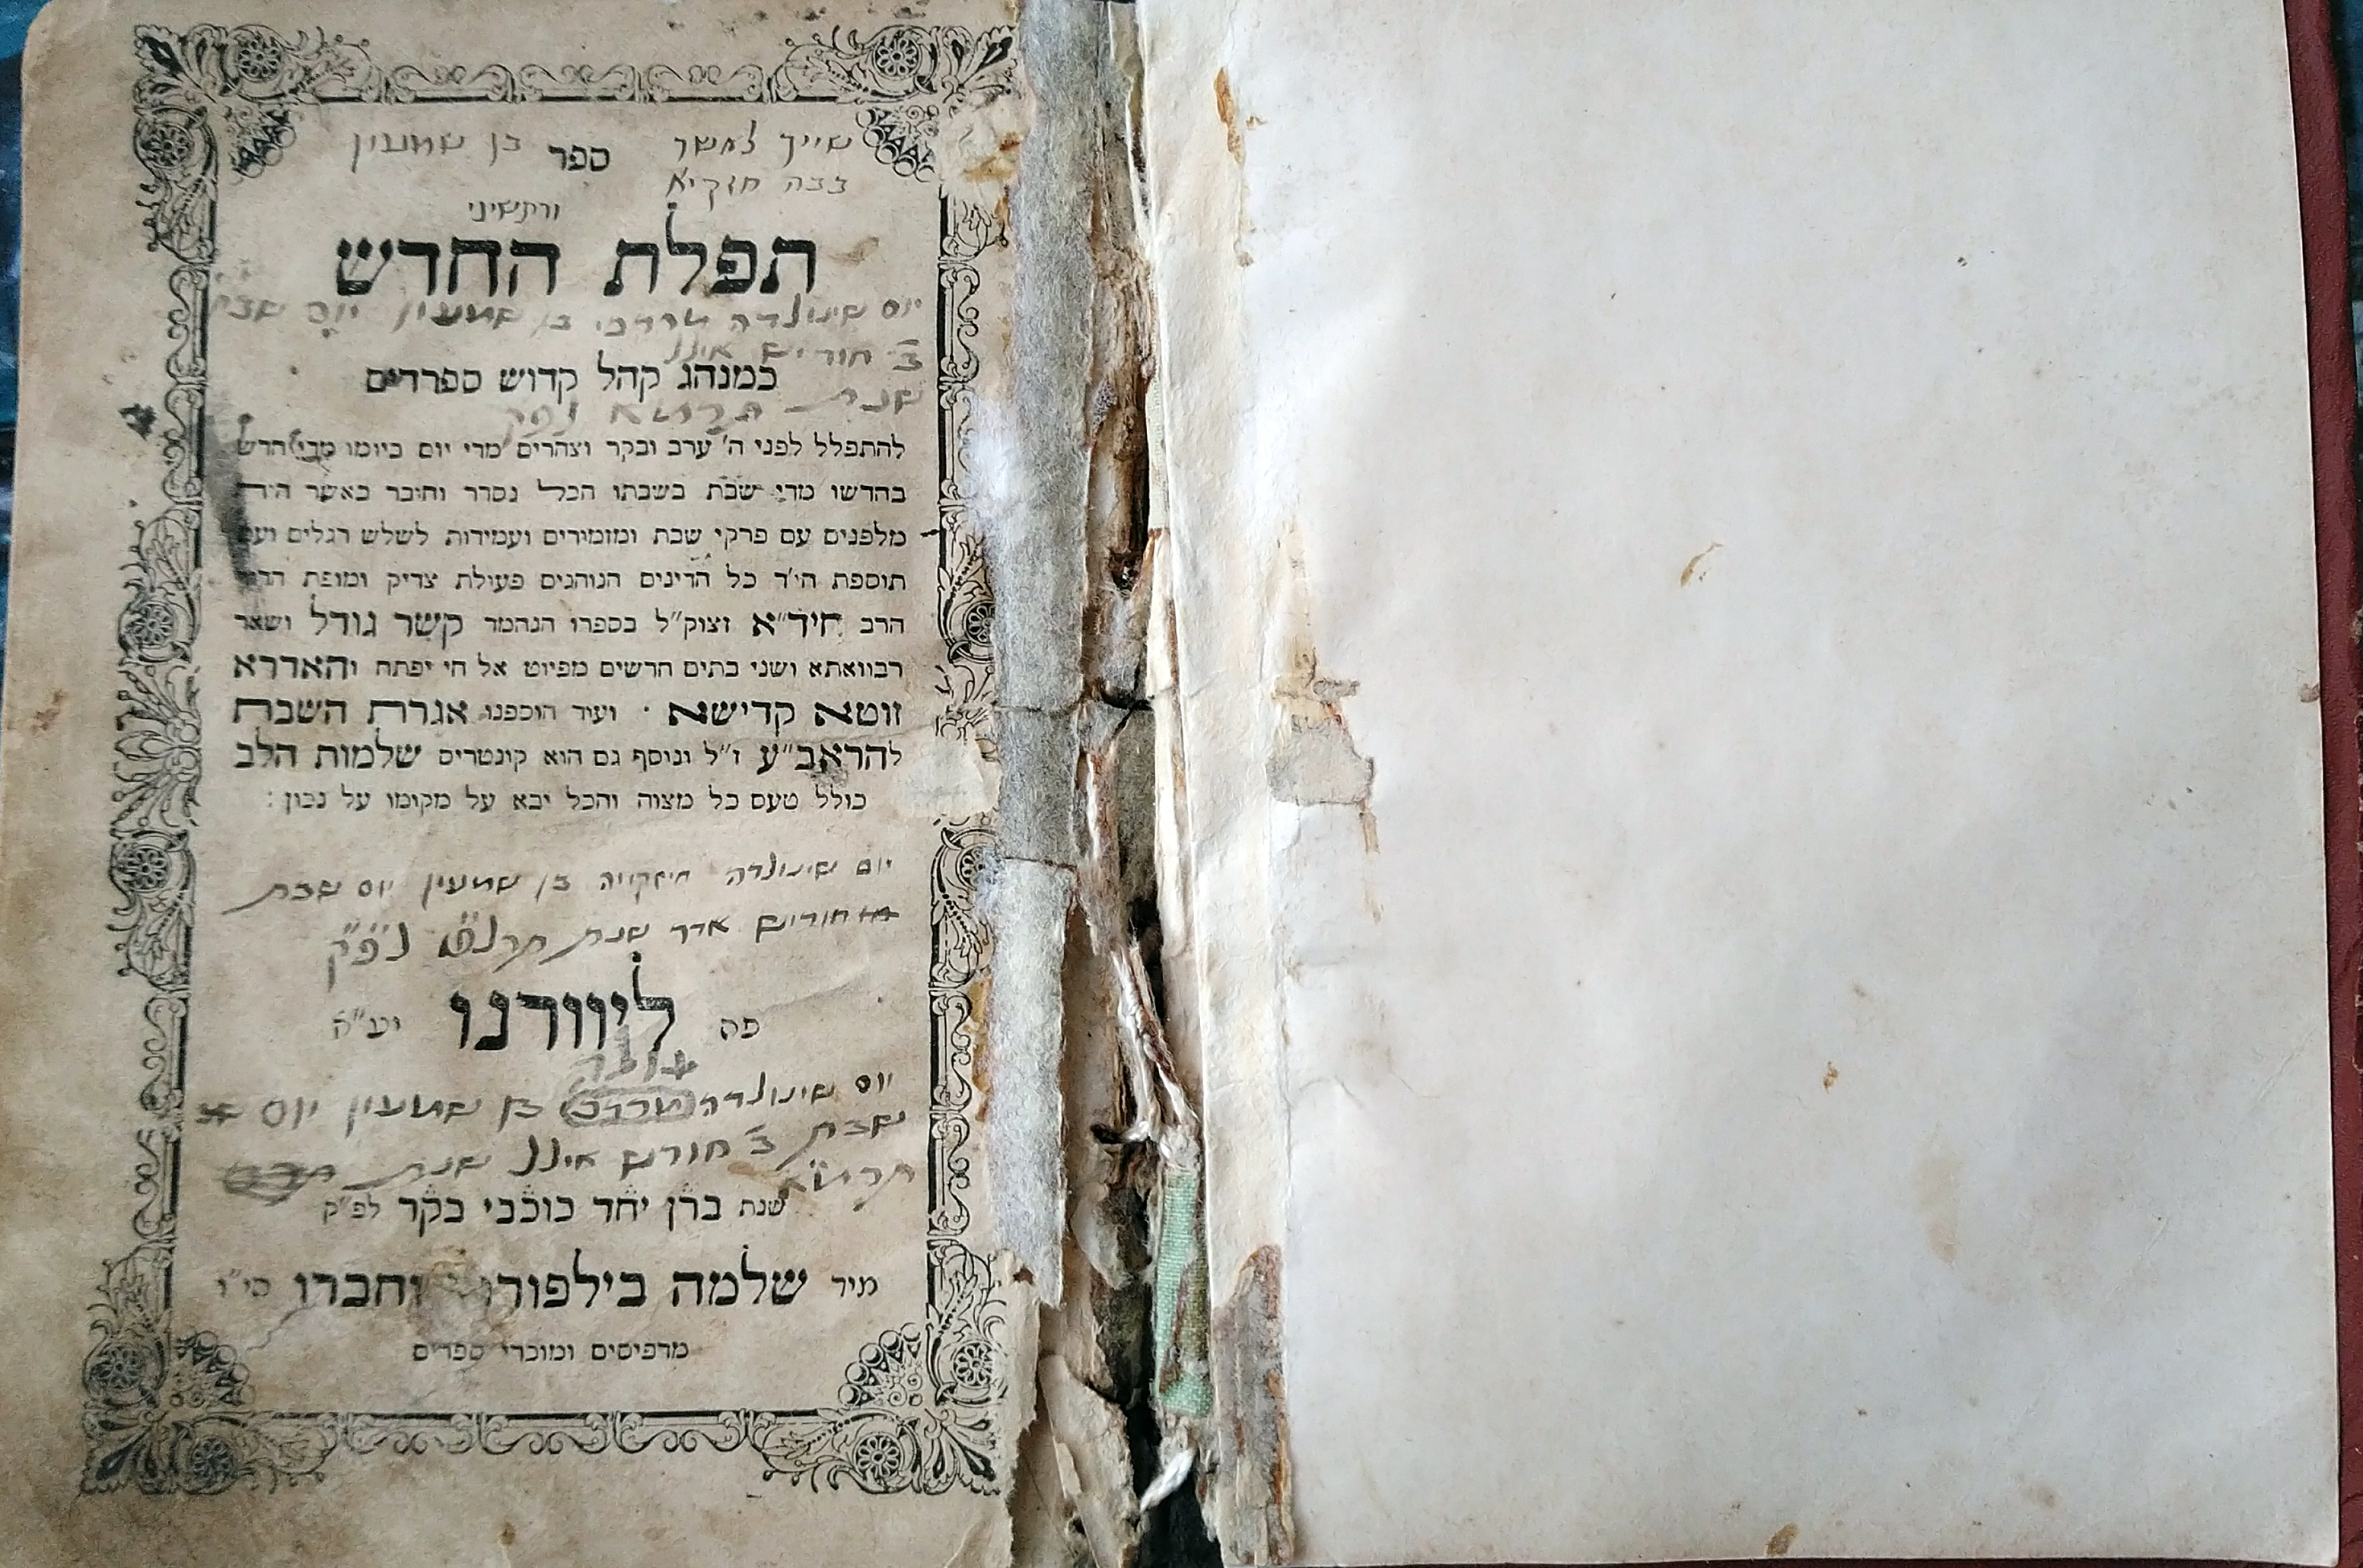 שייך ספר בן שמעון
בבה חזקיא
תפלת החדש
יום בן שמעון יום שבת
ב חודיש
כמנהג קהל קדוש ספרדים
שנת
להתפלל לפני ה' ערב ובקר וצהרים מדי יום ביומו מדי חדש
בחדשו מדי שבת בשבתו הכל נסדר וחובר כאשר היה
מלפנים עם פרקי שבת ומזמורים ועמידות לשלש רגלים ועם
תוספת הי'ד כל הדינים הנוהגים פעולת צדיק ומופת הדור
הרב חיד"א זצוק"ל בספרו הנחמד קשר גודל ושאר
רבוואתא ושני בתים חדשים מפיוט אל חי יפתח והאדרא
זוטא קדישא · ועוד הוספנו אגרת השבת
להראב"ע ז"ל ונוסף גם הוא קונטריס שלמות הלב
כולל טעם כל מצוה והכל יבא על מקומו על נכון :
יום בן שמעון יום שבת
חודיש אדר שנת
פה ליוורנו יע"א
יום בן שמעון יום
שבת ב חודש שנת
שנת ברן יחד כוכבי בקר לפ"ק
מיד שלמה בילפורטי וחברו
מדפיסים ומוכרי ספרים